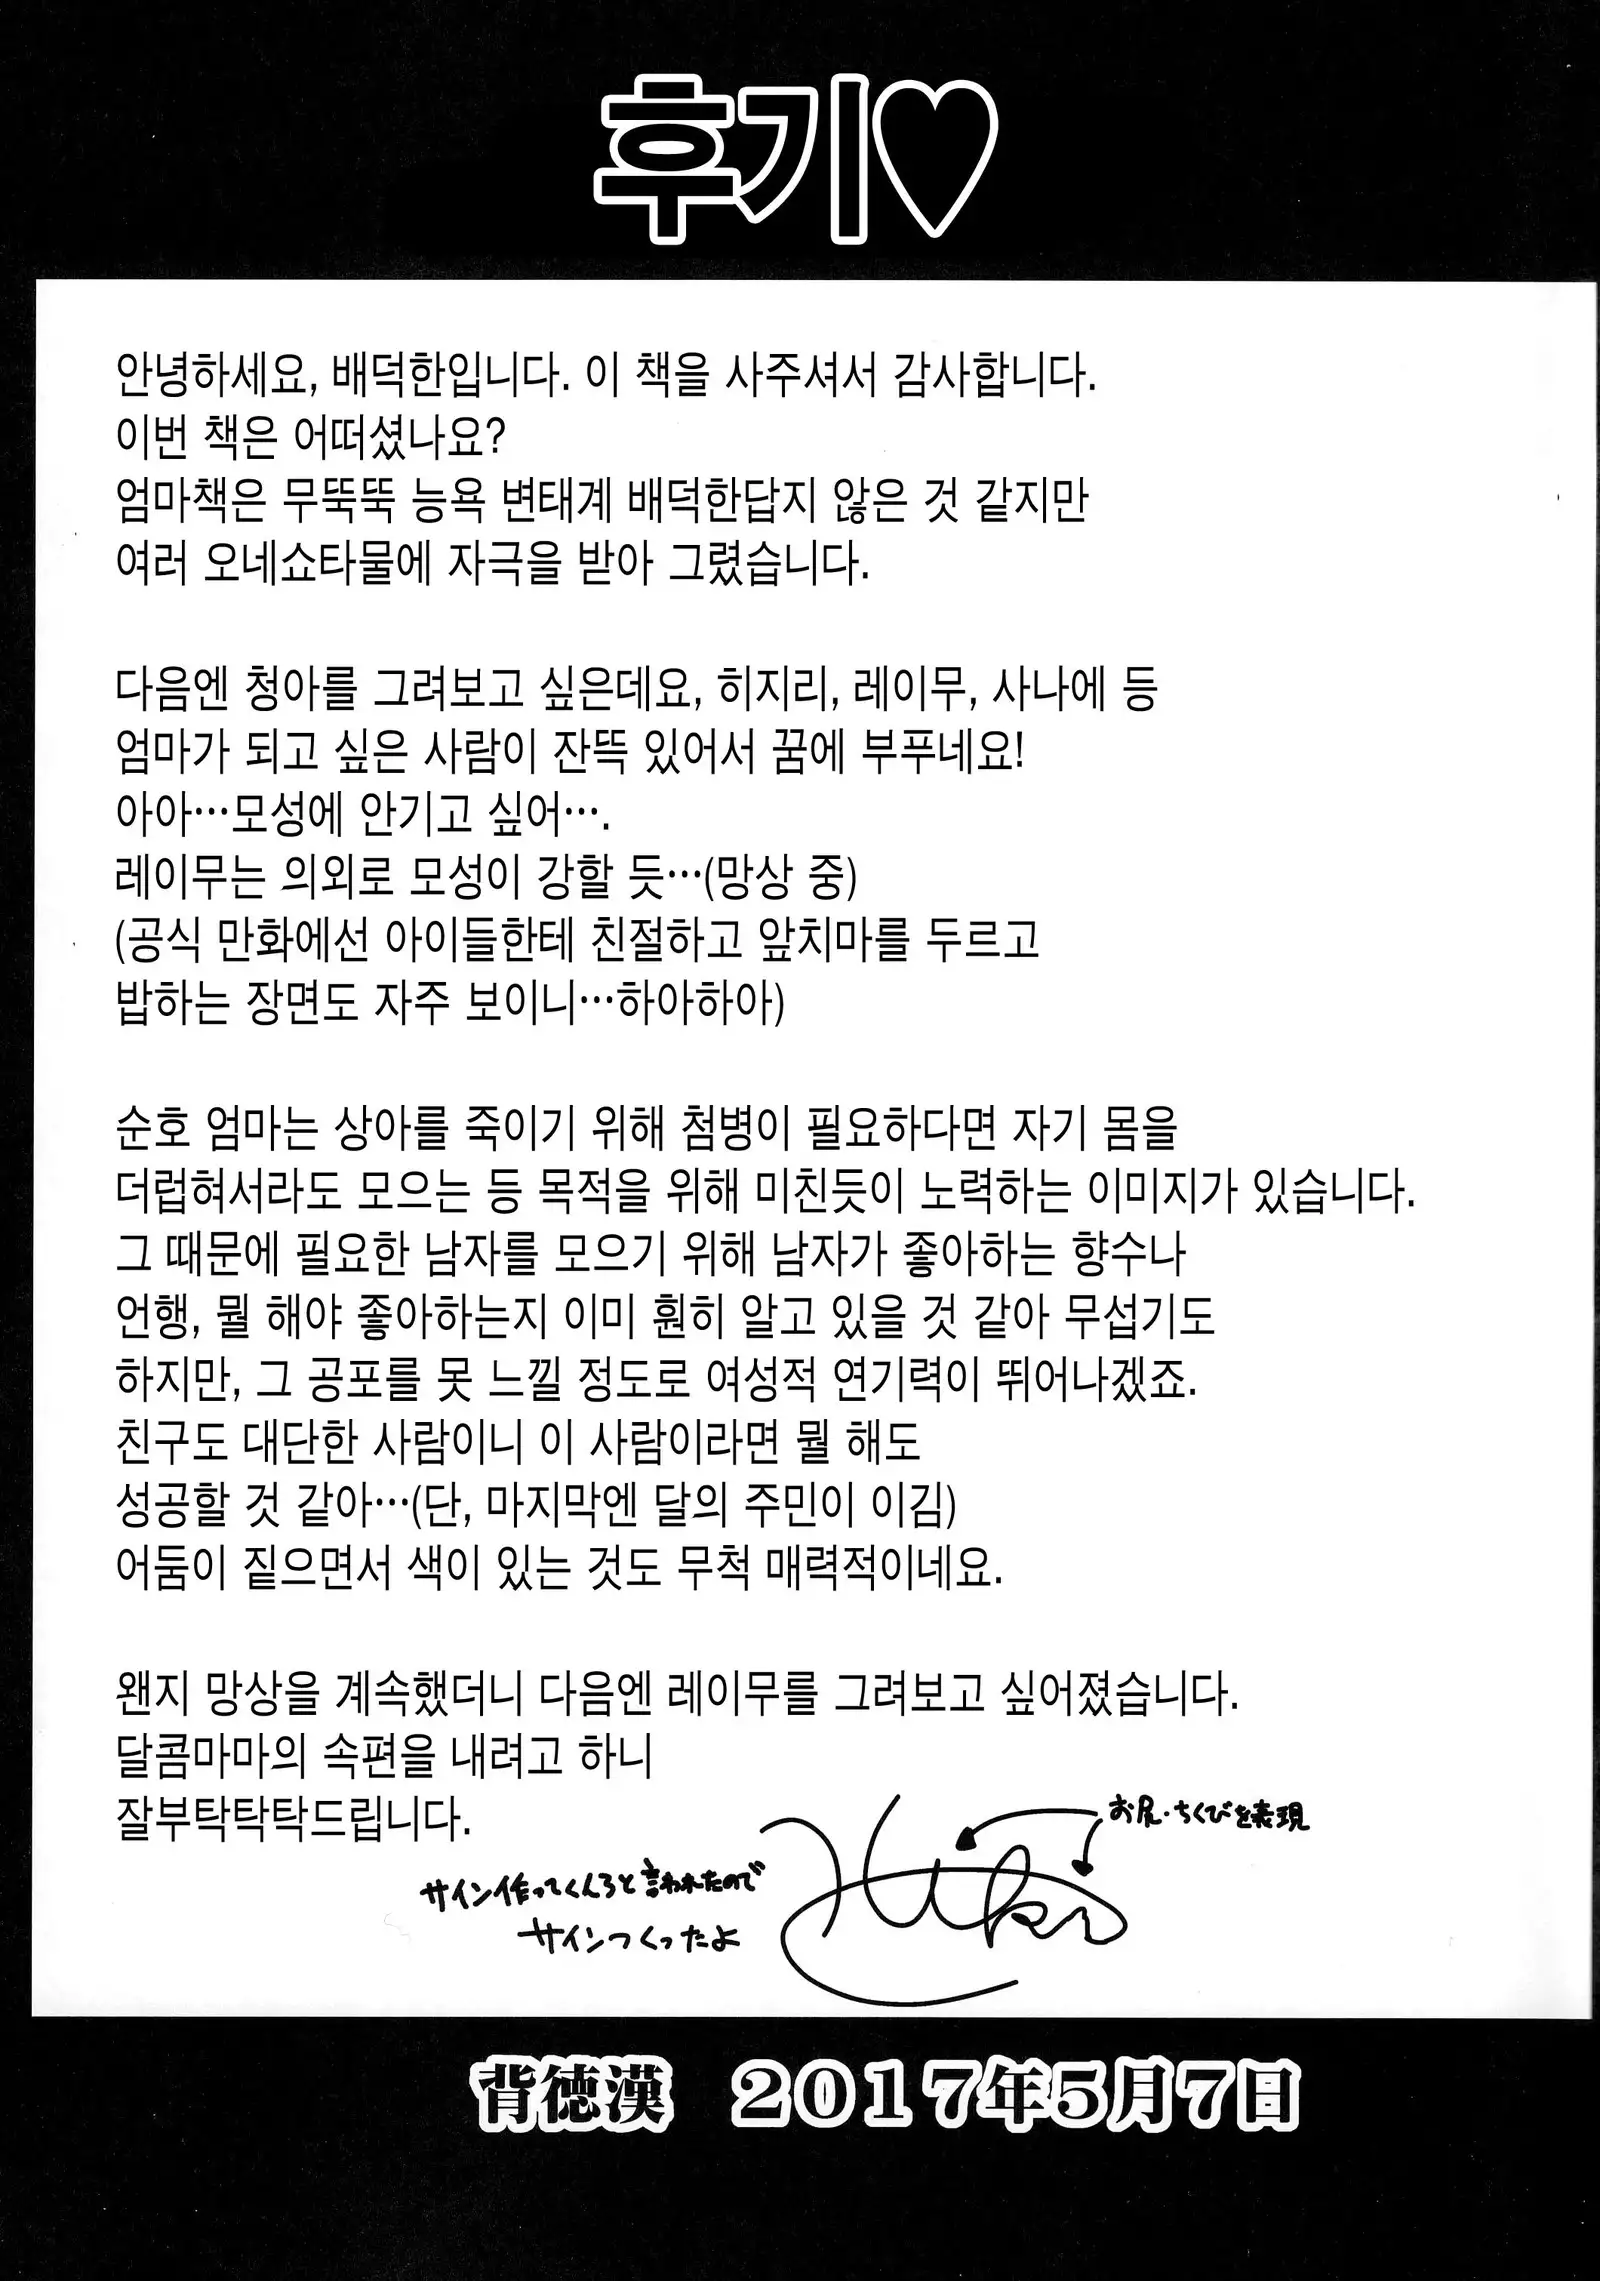 후기♡
안녕하세요, 배덕한입니다. 이 책을 사주셔서 감사합니다.
이번 책은 어떠셨나요?
엄마책은 무뚝뚝 능욕 변태계 배덕한답지 않은 것 같지만
여러 오네쇼타물에 자극을 받아 그렸습니다.
다음엔 청아를 그려보고 싶은데요, 히지리, 레이무, 사나에 등
엄마가 되고 싶은 사람이 잔뜩 있어서 꿈에 부푸네요!
아아…모성에 안기고 싶어….
레이무는 의외로 모성이 강할 듯…(망상 중)
(공식 만화에선 아이들한테 친절하고 앞치마를 두르고
밥하는 장면도 자주 보이니…하아하아)
순호 엄마는 상아를 죽이기 위해 첨병이 필요하다면 자기 몸을
더럽혀서라도 모으는 등 목적을 위해 미친듯이 노력하는 이미지가 있습니다.
그 때문에 필요한 남자를 모으기 위해 남자가 좋아하는 향수나
언행, 뭘 해야 좋아하는지 이미 훤히 알고 있을 것 같아 무섭기도
하지만, 그 공포를 못 느낄 정도로 여성적 연기력이 뛰어나겠죠.
친구도 대단한 사람이니 이 사람이라면 뭘 해도
성공할 것 같아…(단, 마지막엔 달의 주민이 이김)
어둠이 짙으면서 색이 있는 것도 무척 매력적이네요.
왠지 망상을 계속했더니 다음엔 레이무를 그려보고 싶어졌습니다.
달콤마마의 속편을 내려고 하니
잘부탁탁탁드립니다.
お尻・ちくびを表現
サイン作ってくんろと言われたので
サインつくったよ
背徳漢 2017年5月7日